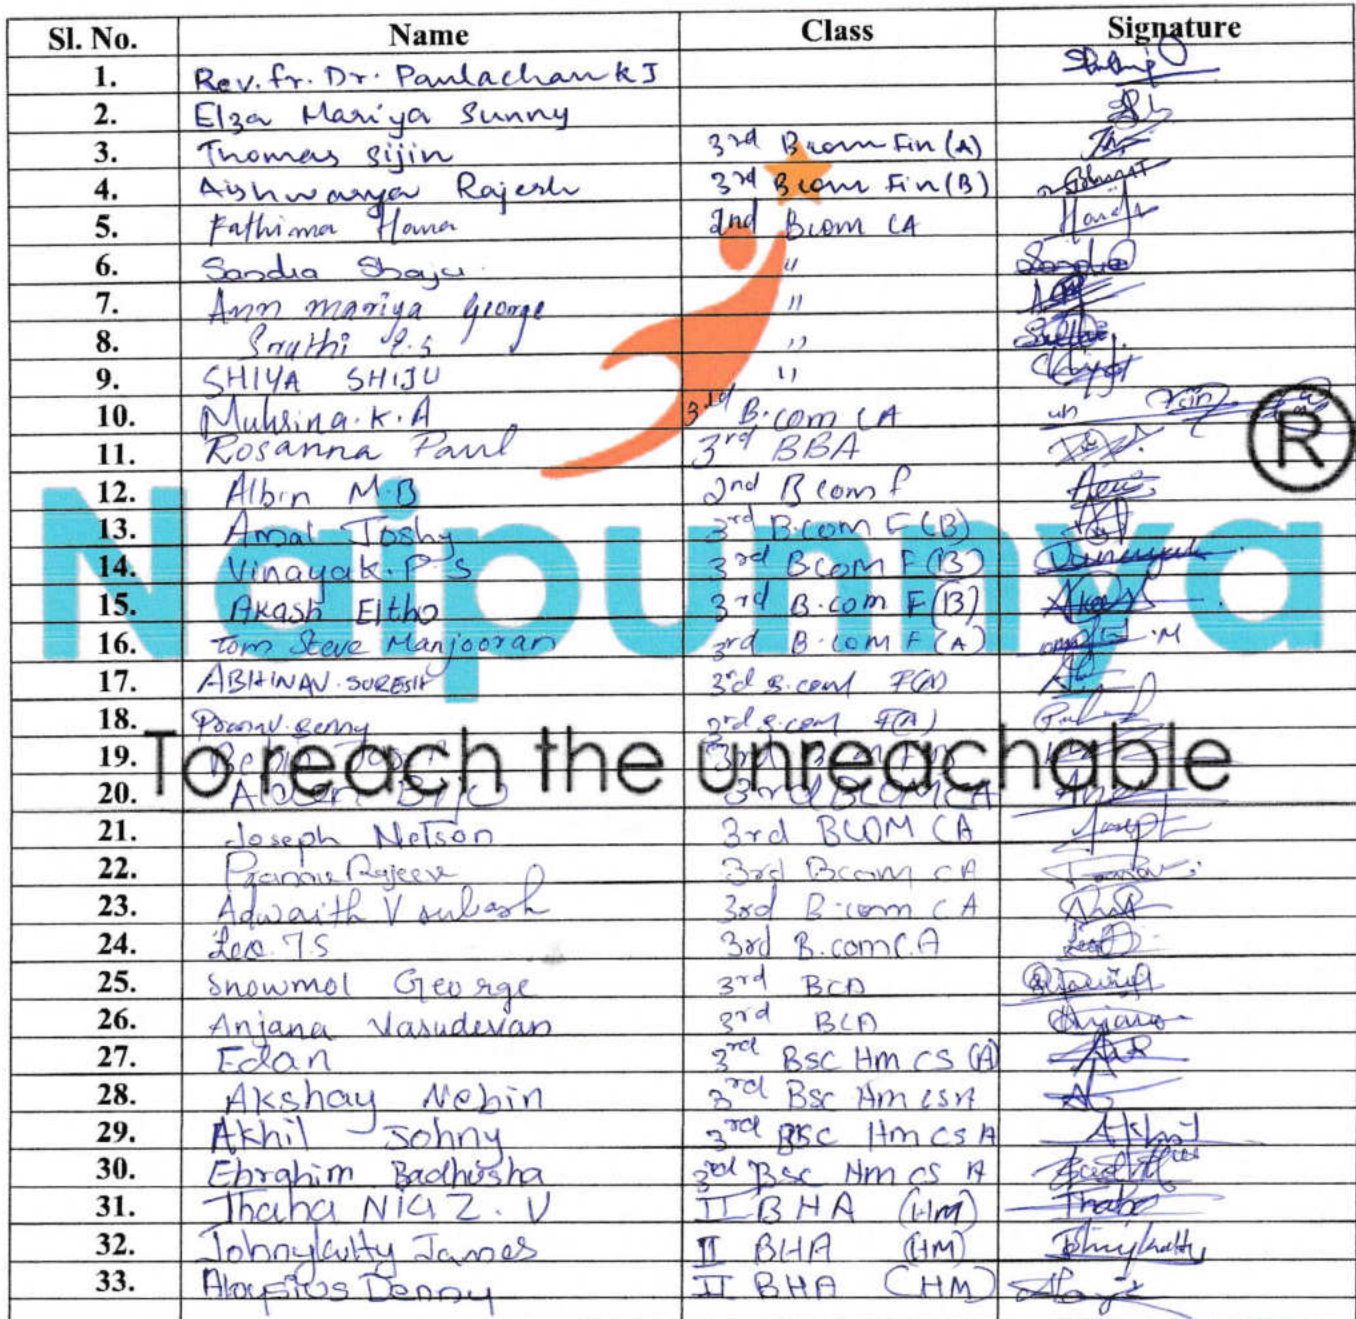 Sl. No. Name Class Signature
1. Rev. fr. Dr. Paulachan K J
2. Elza Mariya Sunny
3. Thomas Sijin 3rd Bcom Fin (A)
4. Aishwarya Rajesh 3rd Bcom Fin (B)
5. Fathima Hana 2nd Bcom CA
6. Sandra Shaju "
7. Ann mariya George "
8. Sruthi "
9. SHIYA SHIJU "
10. Muhsina. K. A 3rd B.com CA
®
11. Rosanna Paul 3rd BBA
12. Albin M.B 2nd Bcom f
13. Amal Joshy 3rd B.com F (B)
14. Vinayak. P S 3rd Bcom F (B)
Naipunnya
15. Akash Eltho 3rd B.com F (B)
16. Tom Steve Manjooran 3rd B.com F (A)
17. ABHINAV. SURESH 3rd B.com F(A)
18. Pranav. Benny 3rd B.com F(A)
To reach the unreachable
19. 3rd
20. Biju 3rd BCOM CA
21. Joseph Nelson 3rd BCOM CA
22. Rajeev 3rd Bcom CA
23. Adwaith V Subash 3rd B.com CA
24. Leo. T.S 3rd B.com C.A
25. Snowmol George 3rd BCA
26. Anjana Vasudevan 3rd BCA
27. Edan 3rd Bsc Hm CS (A)
28. Akshay Nebin 3rd Bsc Hm CS A
29. Akhil Johny 3rd BSC Hm CS A
30. Ebrahim Badhusha 3rd Bsc Hm CS A
31. Thaha NIAZ. V II BHA (HM) Thaha
32. Johnykutty James II BHA (HM) Johnykutty
33. Aloysius Denny II BHA (HM)